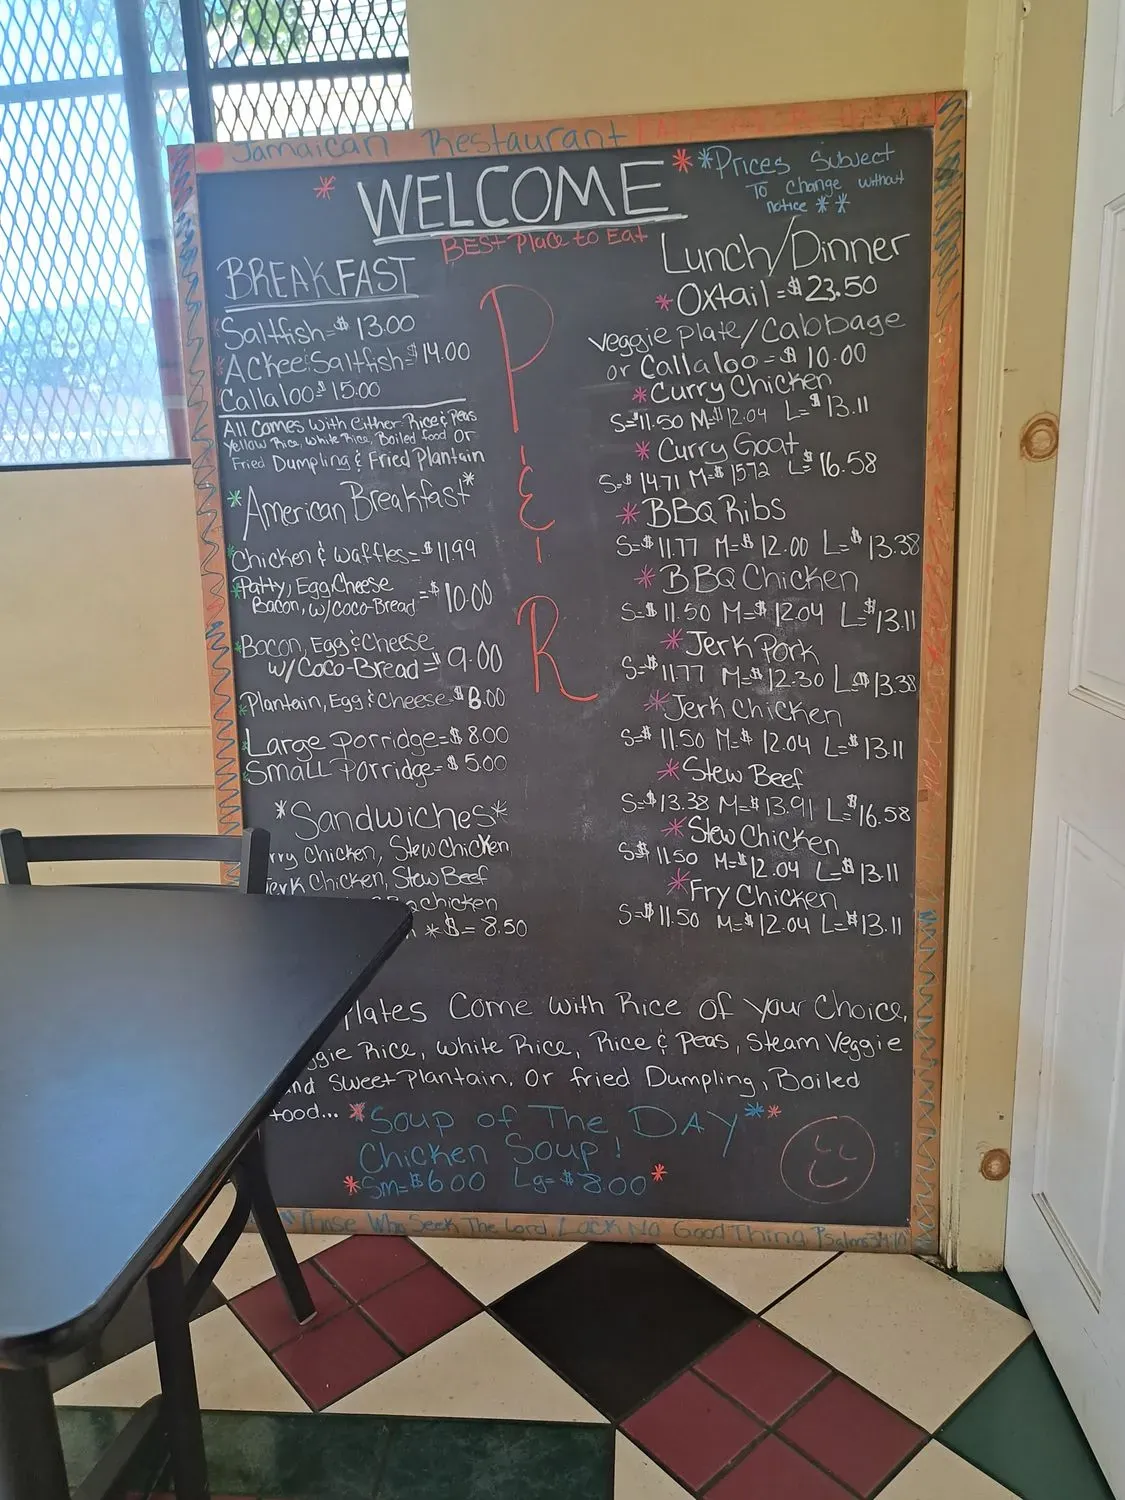 Jamaican Restaurant
* WELCOME *
*Prices Subject
To change without
notice **
BEST Place to Eat
P
&
R
BREAKFAST
Saltfish=$ 13.00
*Ackee & Saltfish=$14.00
Callaloo=$ 15.00
All Comes with Either Rice & Peas
Yellow Rice, White Rice, Boiled food Or
Fried Dumpling & Fried Plantain
*American Breakfast*
*Chicken & Waffles=$11.99
*Patty, Egg, Cheese
Bacon, w/Coco-Bread =$10.00
*Bacon, Egg & Cheese
w/Coco-Bread=$9.00
*Plantain, Egg & Cheese=$8.00
*Large Porridge=$8.00
*Small Porridge=$5.00
*Sandwiches*
Chicken, Stew Chicken
Chicken, Stew Beef
chicken
*$= 8.50
Lunch/Dinner
*Oxtail=$23.50
Veggie Plate/Cabbage
or Callaloo=$10.00
*Curry Chicken
S=$11.50 M=$12.04 L=$13.11
*Curry Goat
S=$14.71 M=$15.72 L=$16.58
*BBQ Ribs
S=$11.77 M=$12.00 L=$13.38
*BBQ Chicken
S=$11.50 M=$12.04 L=$13.11
*Jerk Pork
S=$11.77 M=$12.30 L=$13.38
*Jerk Chicken
S=$11.50 M=$12.04 L=$13.11
*Stew Beef
S=$13.38 M=$13.91 L=$16.58
*Stew Chicken
S=$11.50 M=$12.04 L=$13.11
*Fry Chicken
S=$11.50 M=$12.04 L=$13.11
Plates Come with Rice of Your Choice,
Rice, White Rice, Rice & Peas, Steam Veggie
and Sweet Plantain. Or fried Dumpling, Boiled
food...
*Soup of The DAY**
Chicken Soup!
*Sm=$6.00 Lg=$8.00*
Those Who Seek The Lord, Lack No Good Thing Psalms 34:10